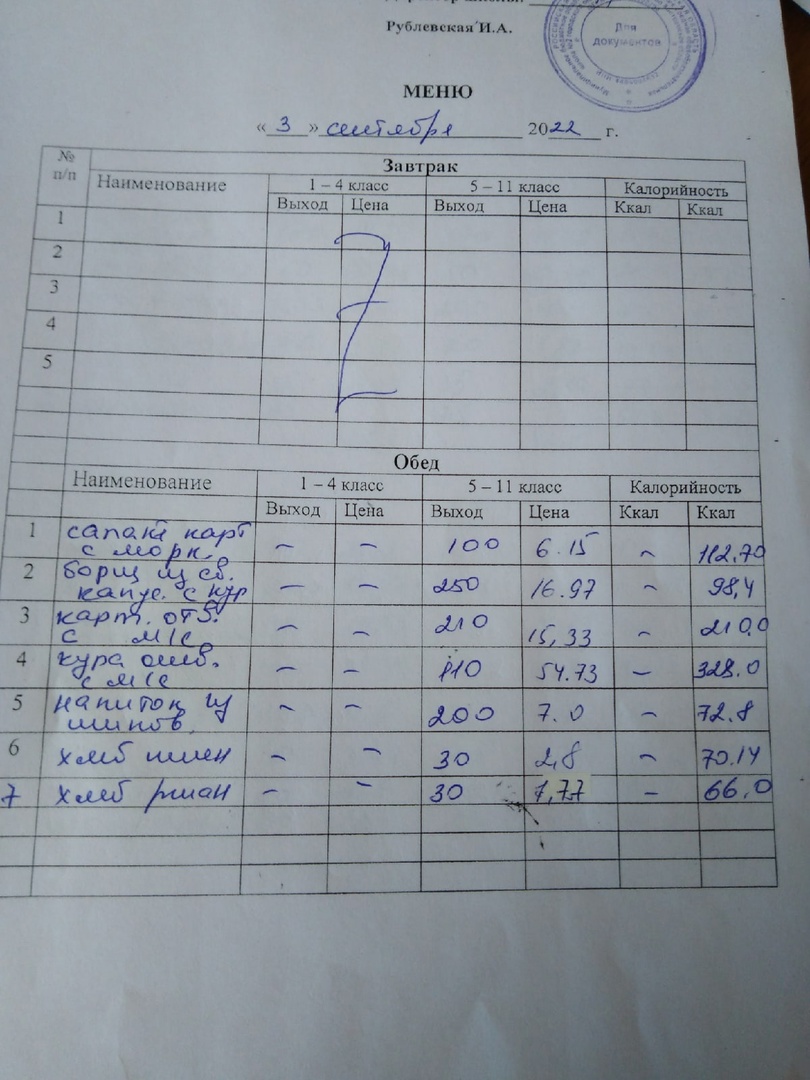 Рублевская И.А.
Для
документов
МЕНЮ
« 3 » сентября 2022 г.
№ п/п
Завтрак
Наименование 1 – 4 класс 5 – 11 класс Калорийность
Выход Цена Выход Цена Ккал Ккал
1
2
3
4
5
Обед
Наименование 1 – 4 класс 5 – 11 класс Калорийность
Выход Цена Выход Цена Ккал Ккал
1 салат карт
с морк. – – 100 6.15 – 112.70
2 борщ из св.
капус. с кур – – 250 16.97 – 98,4
3 карт. отв.
с м/с – – 210 15,33 – 210,0
4 кура отв.
с м/с – – 110 54.73 – 328.0
5 напиток из
шипов. – – 200 7.0 – 72.8
6 хлеб пшен – – 30 2,8 – 70.14
7 хлеб ржан – – 30 1,77 – 66.0